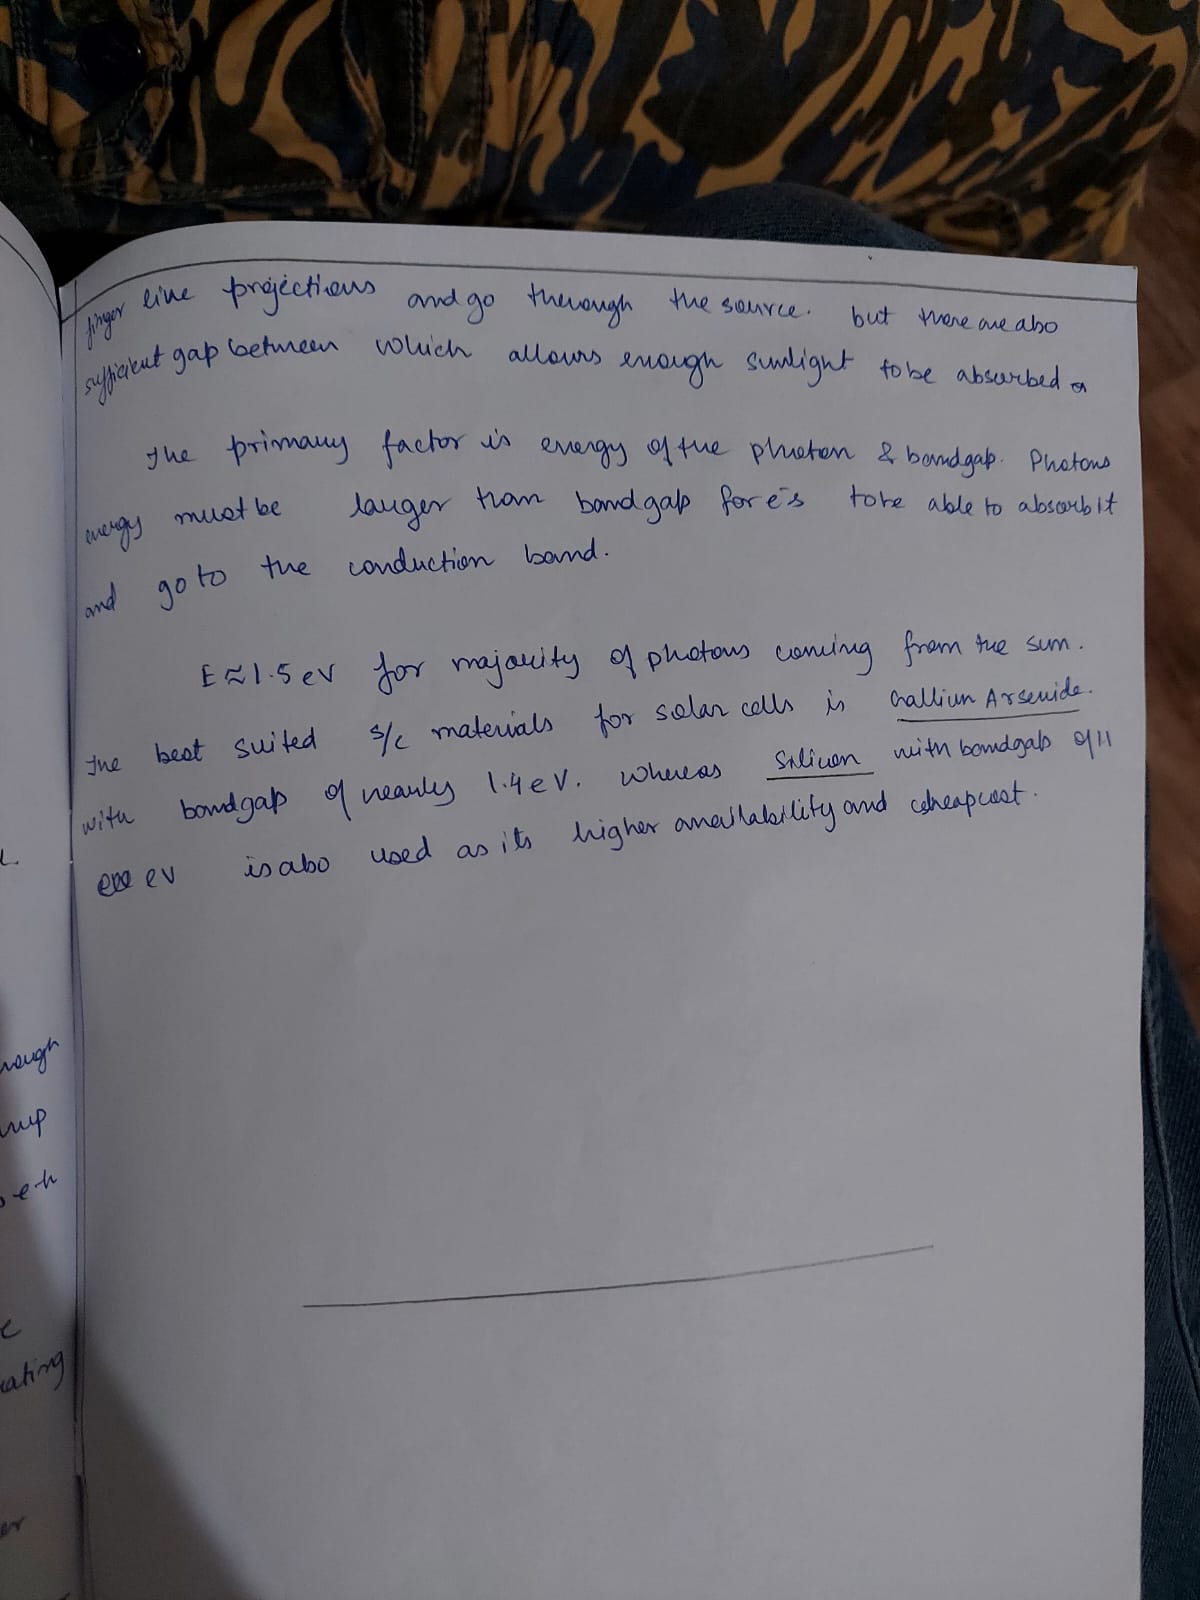 finger line projections and go through the source. but there are also
sufficient gap between which allows enough sunlight to be absorbed
The primary factor is energy of the photon & bandgap. Photons
energy must be larger than bandgap for e⁻s to be able to absorb it
and go to the conduction band.
E ≈ 1.5 eV for majority of photons coming from the sun.
The best suited s/c materials for solar cells is Gallium Arsenide.
with bandgap of nearly 1.4 eV. whereas Silicon with bandgap of 11
eV is also used as its higher availability and cheap cost.